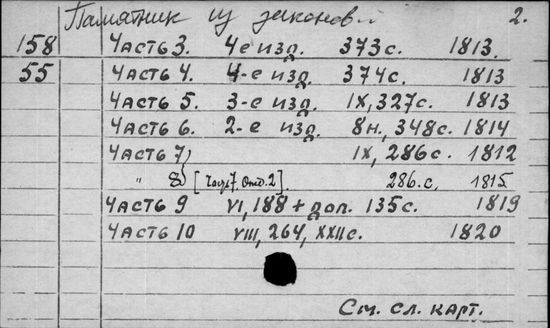 Памятник из законов.. 2.
158 Часть 3. 4е изд. 373 с. 1813.
55 Часть 4. 4-е изд. 374 с. 1813
Часть 5. 3-е изд. IX, 327 с. 1813
Часть 6. 2-е изд. 8н., 348 с. 1814
Часть 7) IX, 286 с. 1812
" 8) [Часть 7. Отд. 2]. 286. с. 1815
Часть 9 VI, 188 + доп. 135 с. 1819
Часть 10 VIII, 264, XXII с. 1820
См. сл. карт.